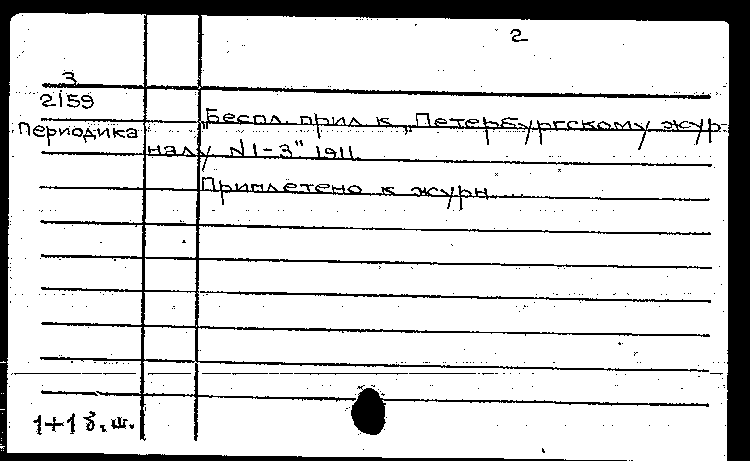 2
3
2159
„Беспл. прил к „Петербургскому жур-
Периодика
налу №1-3" 1911.
Приплетено к журн....
1+1 б.ш.